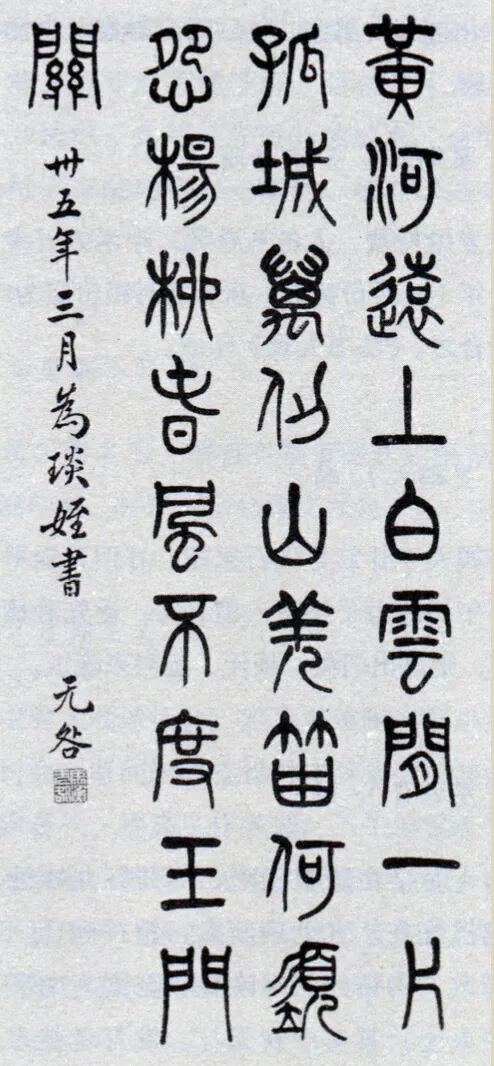 黃河遠上白雲間一片
孤城萬仞山羌笛何須
怨楊柳春風不度玉門
關
卅五年三月為琰姪書 无咎